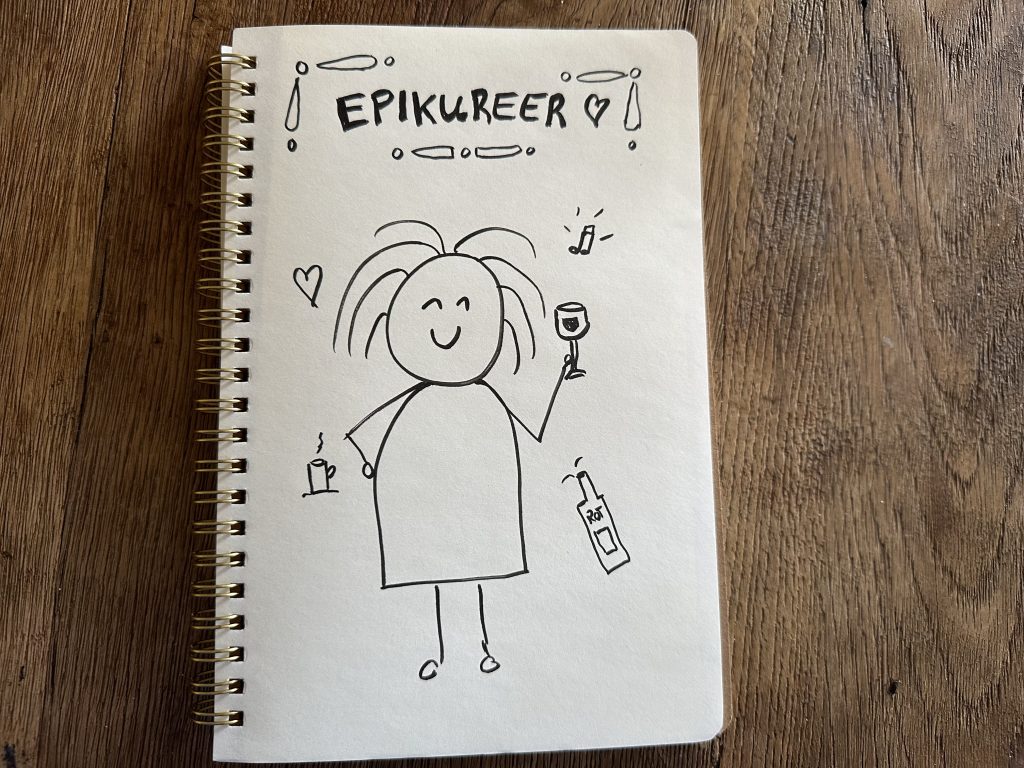 EPIKUREER ♡
ROT